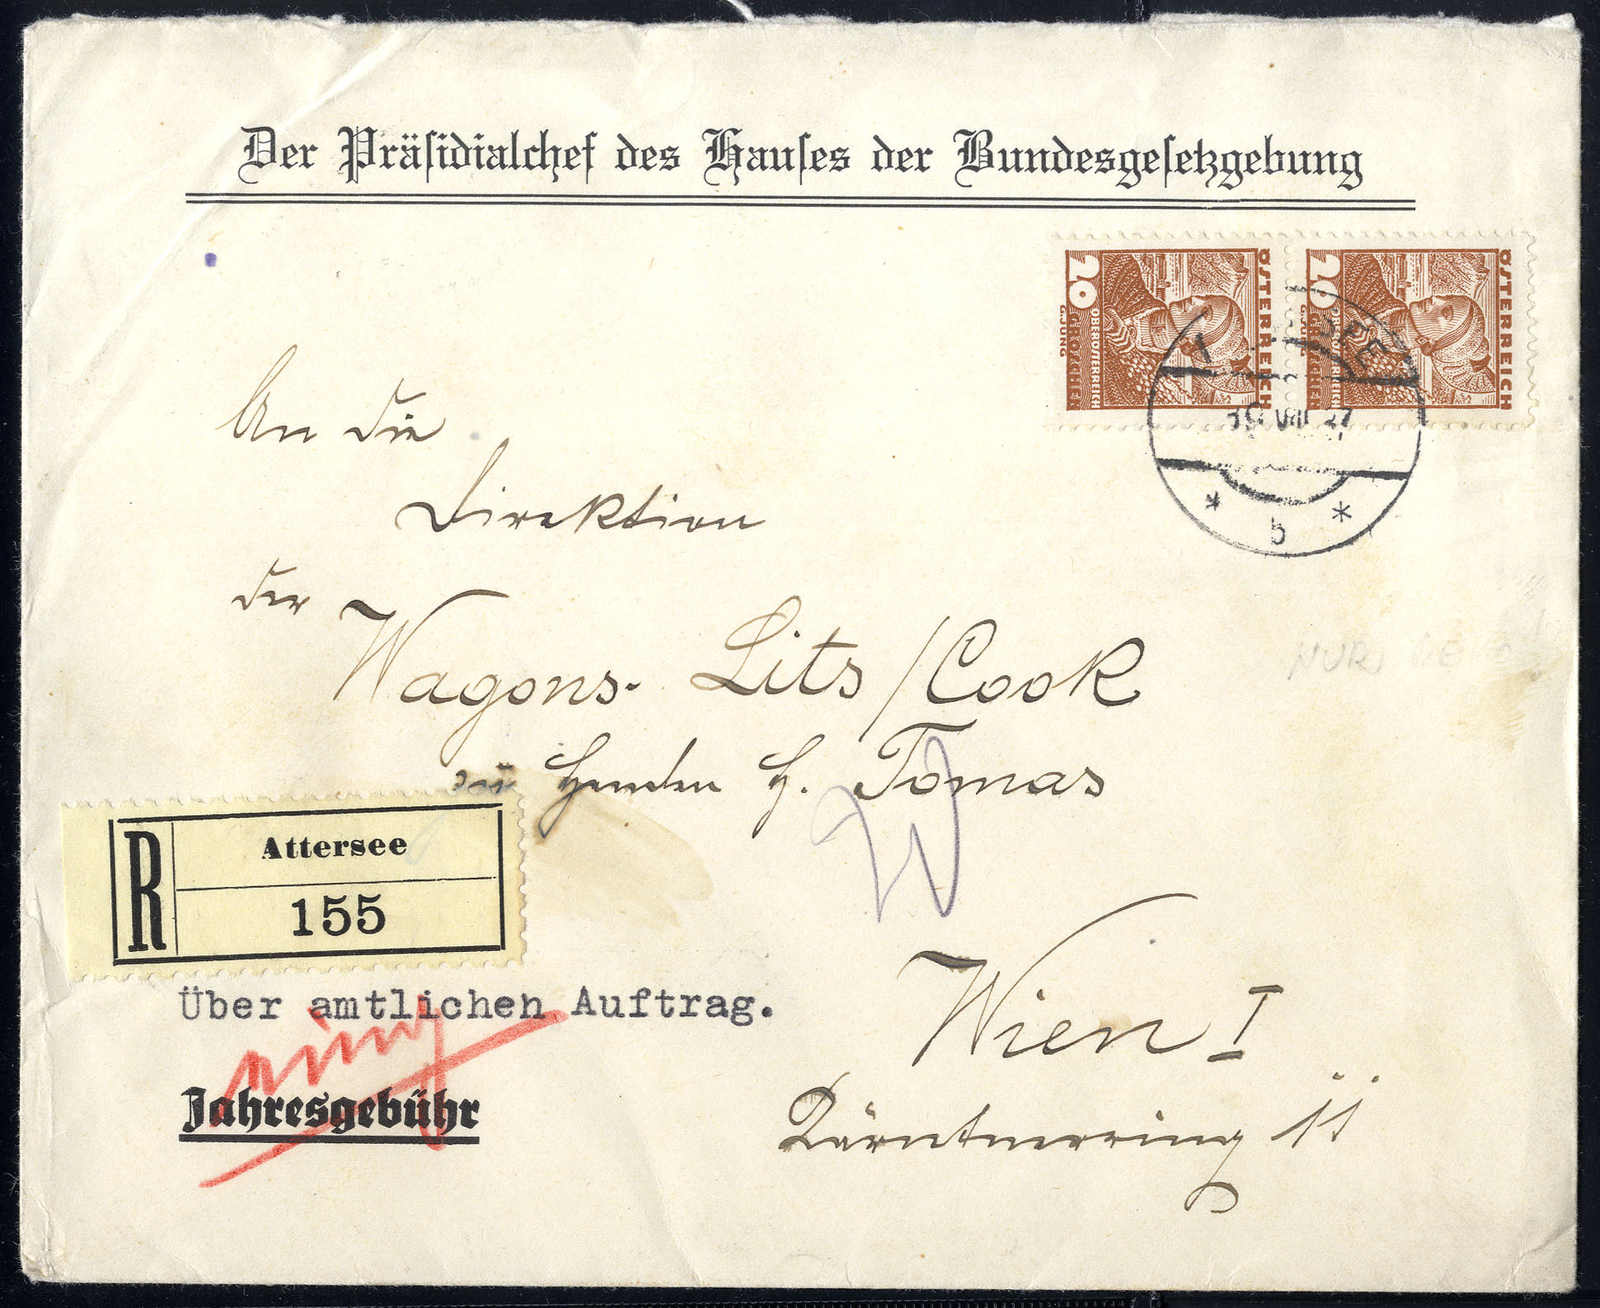 Der Präsidialchef des Hauses der Bundesgesetzgebung
20 GROSCHEN
OBERÖSTERREICH
ÖSTERREICH
20 GROSCHEN
OBERÖSTERREICH
ÖSTERREICH
VIII 37
* b *
An die
Direktion
der
Wagons-Lits/Cook
zu Handen H. Tomas
R
Attersee
155
Über amtlichen Auftrag.
Jahresgebühr
Wien I
Kärntnerring 11